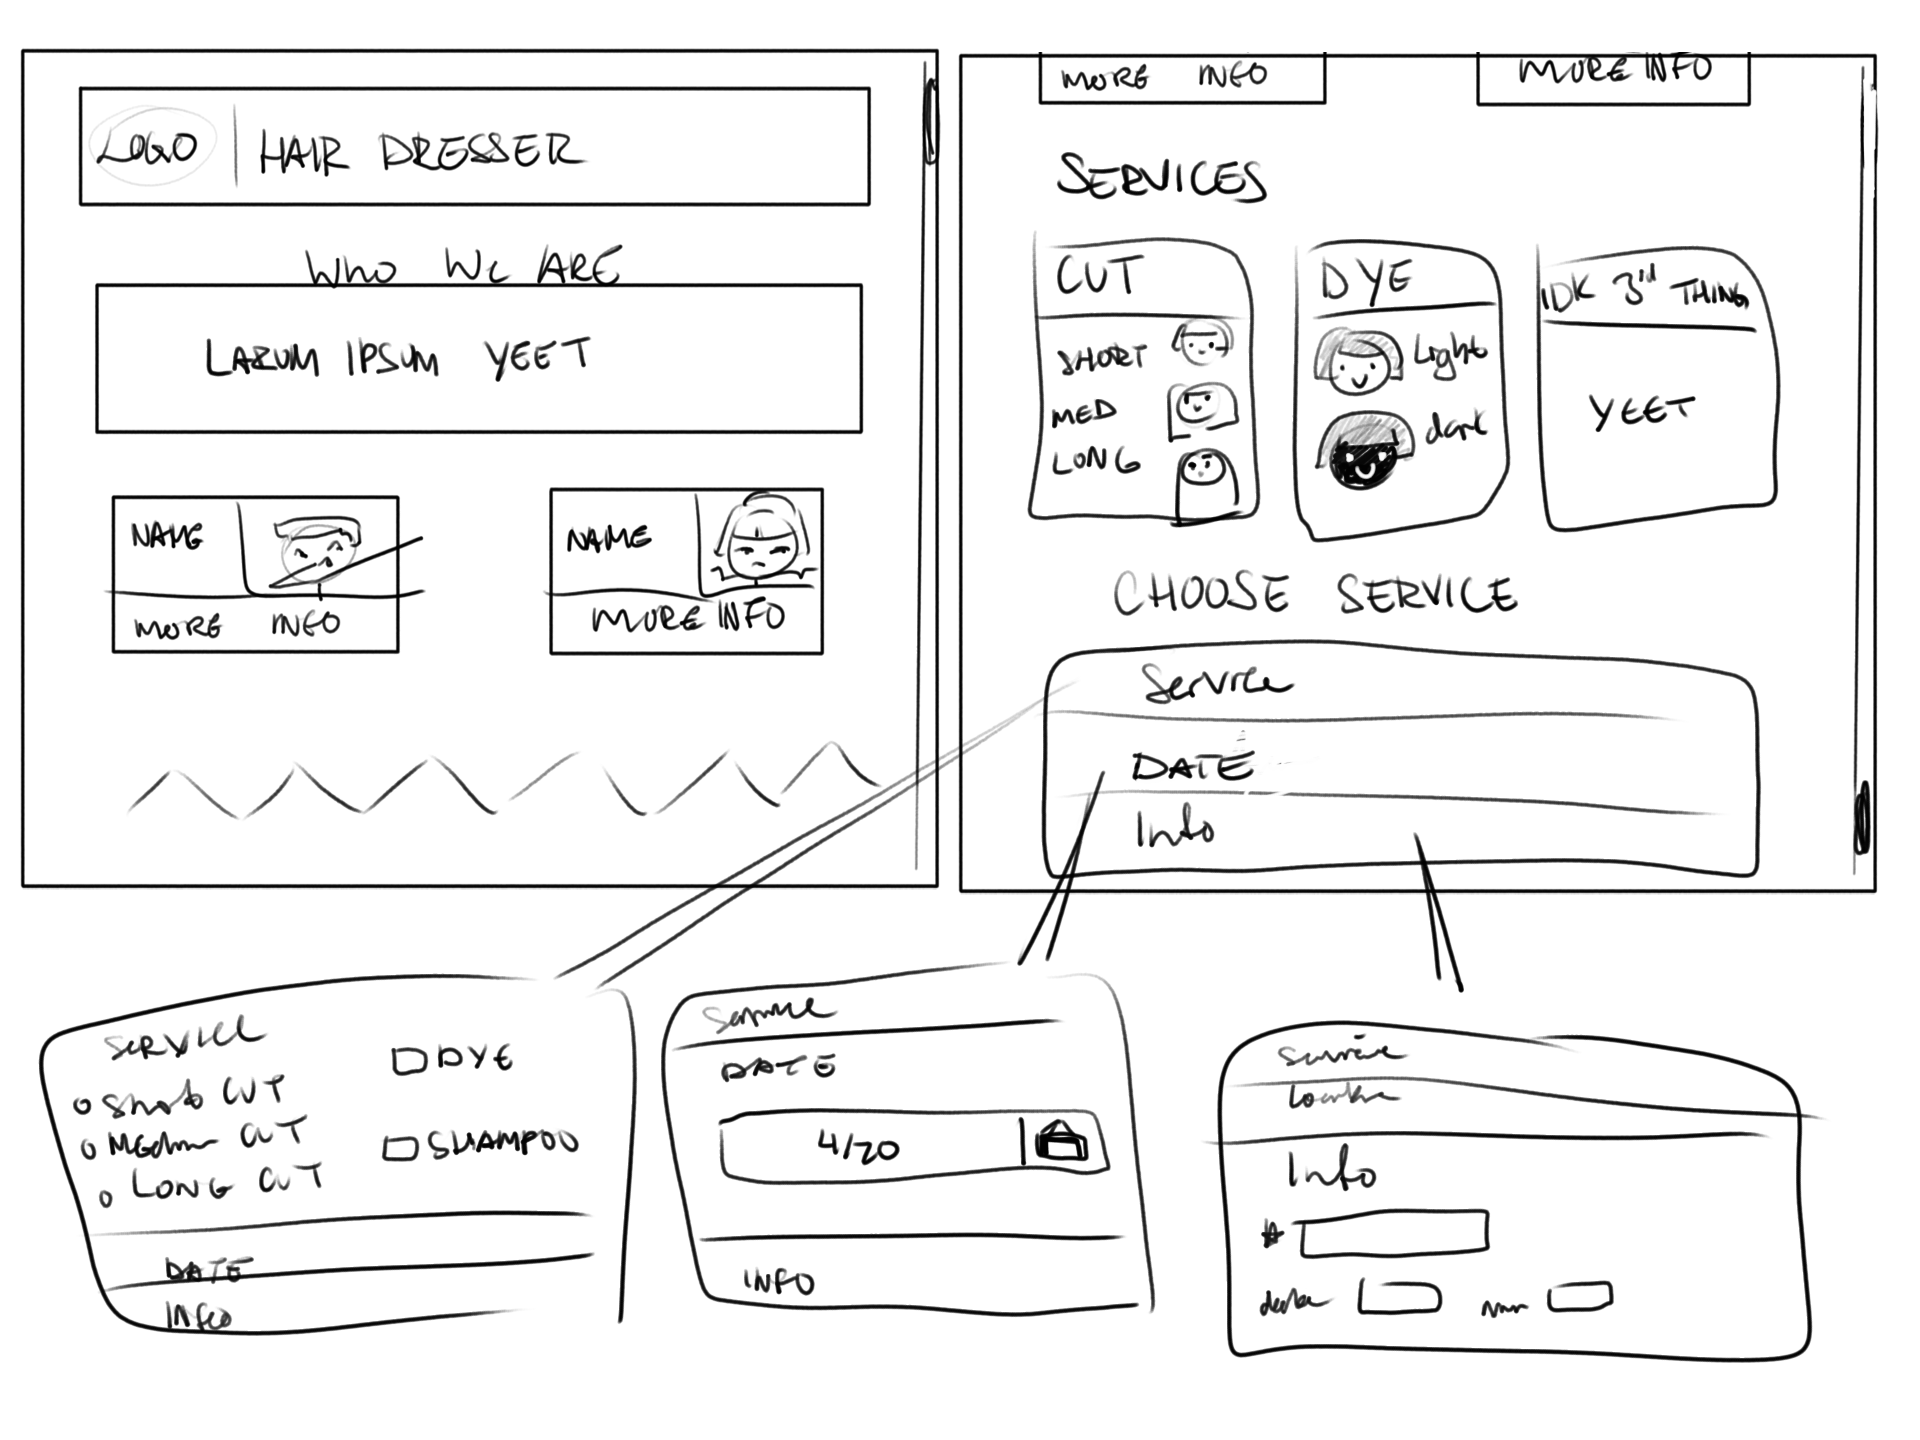 LOGO HAIR DRESSER
WHO WE ARE
LARUM IPSUM YEET
NAME
MORE INFO
NAME
MORE INFO
MORE INFO
MORE INFO
SERVICES
CUT
SHORT
MED
LONG
DYE
Light
dark
IDK 3rd THING
YEET
CHOOSE SERVICE
Service
DATE
Info
SERVICE
Short CUT
Medium CUT
LONG CUT
DYE
SHAMPOO
DATE
INFO
Service
DATE
4/20
INFO
Service
Info
#